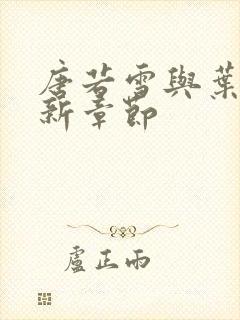 唐若雪與葉
新章節
盧正雨